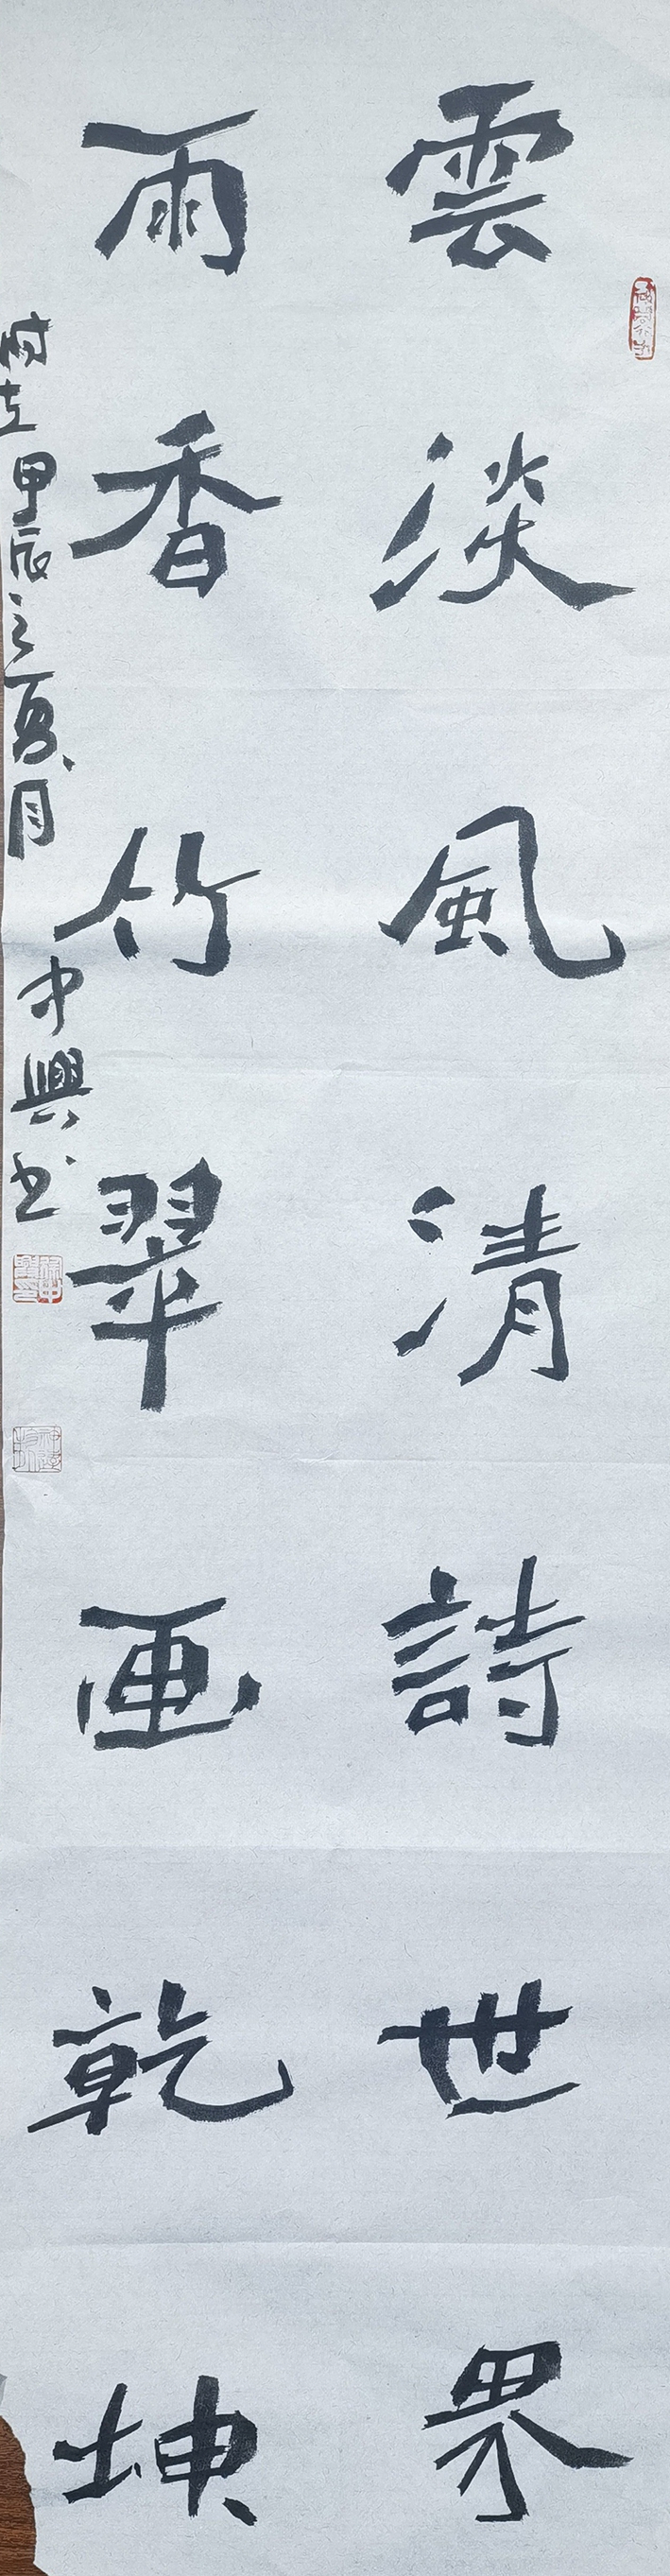 雲淡風清詩世界
雨香竹翠画乾坤
時在甲辰之夏月中興书